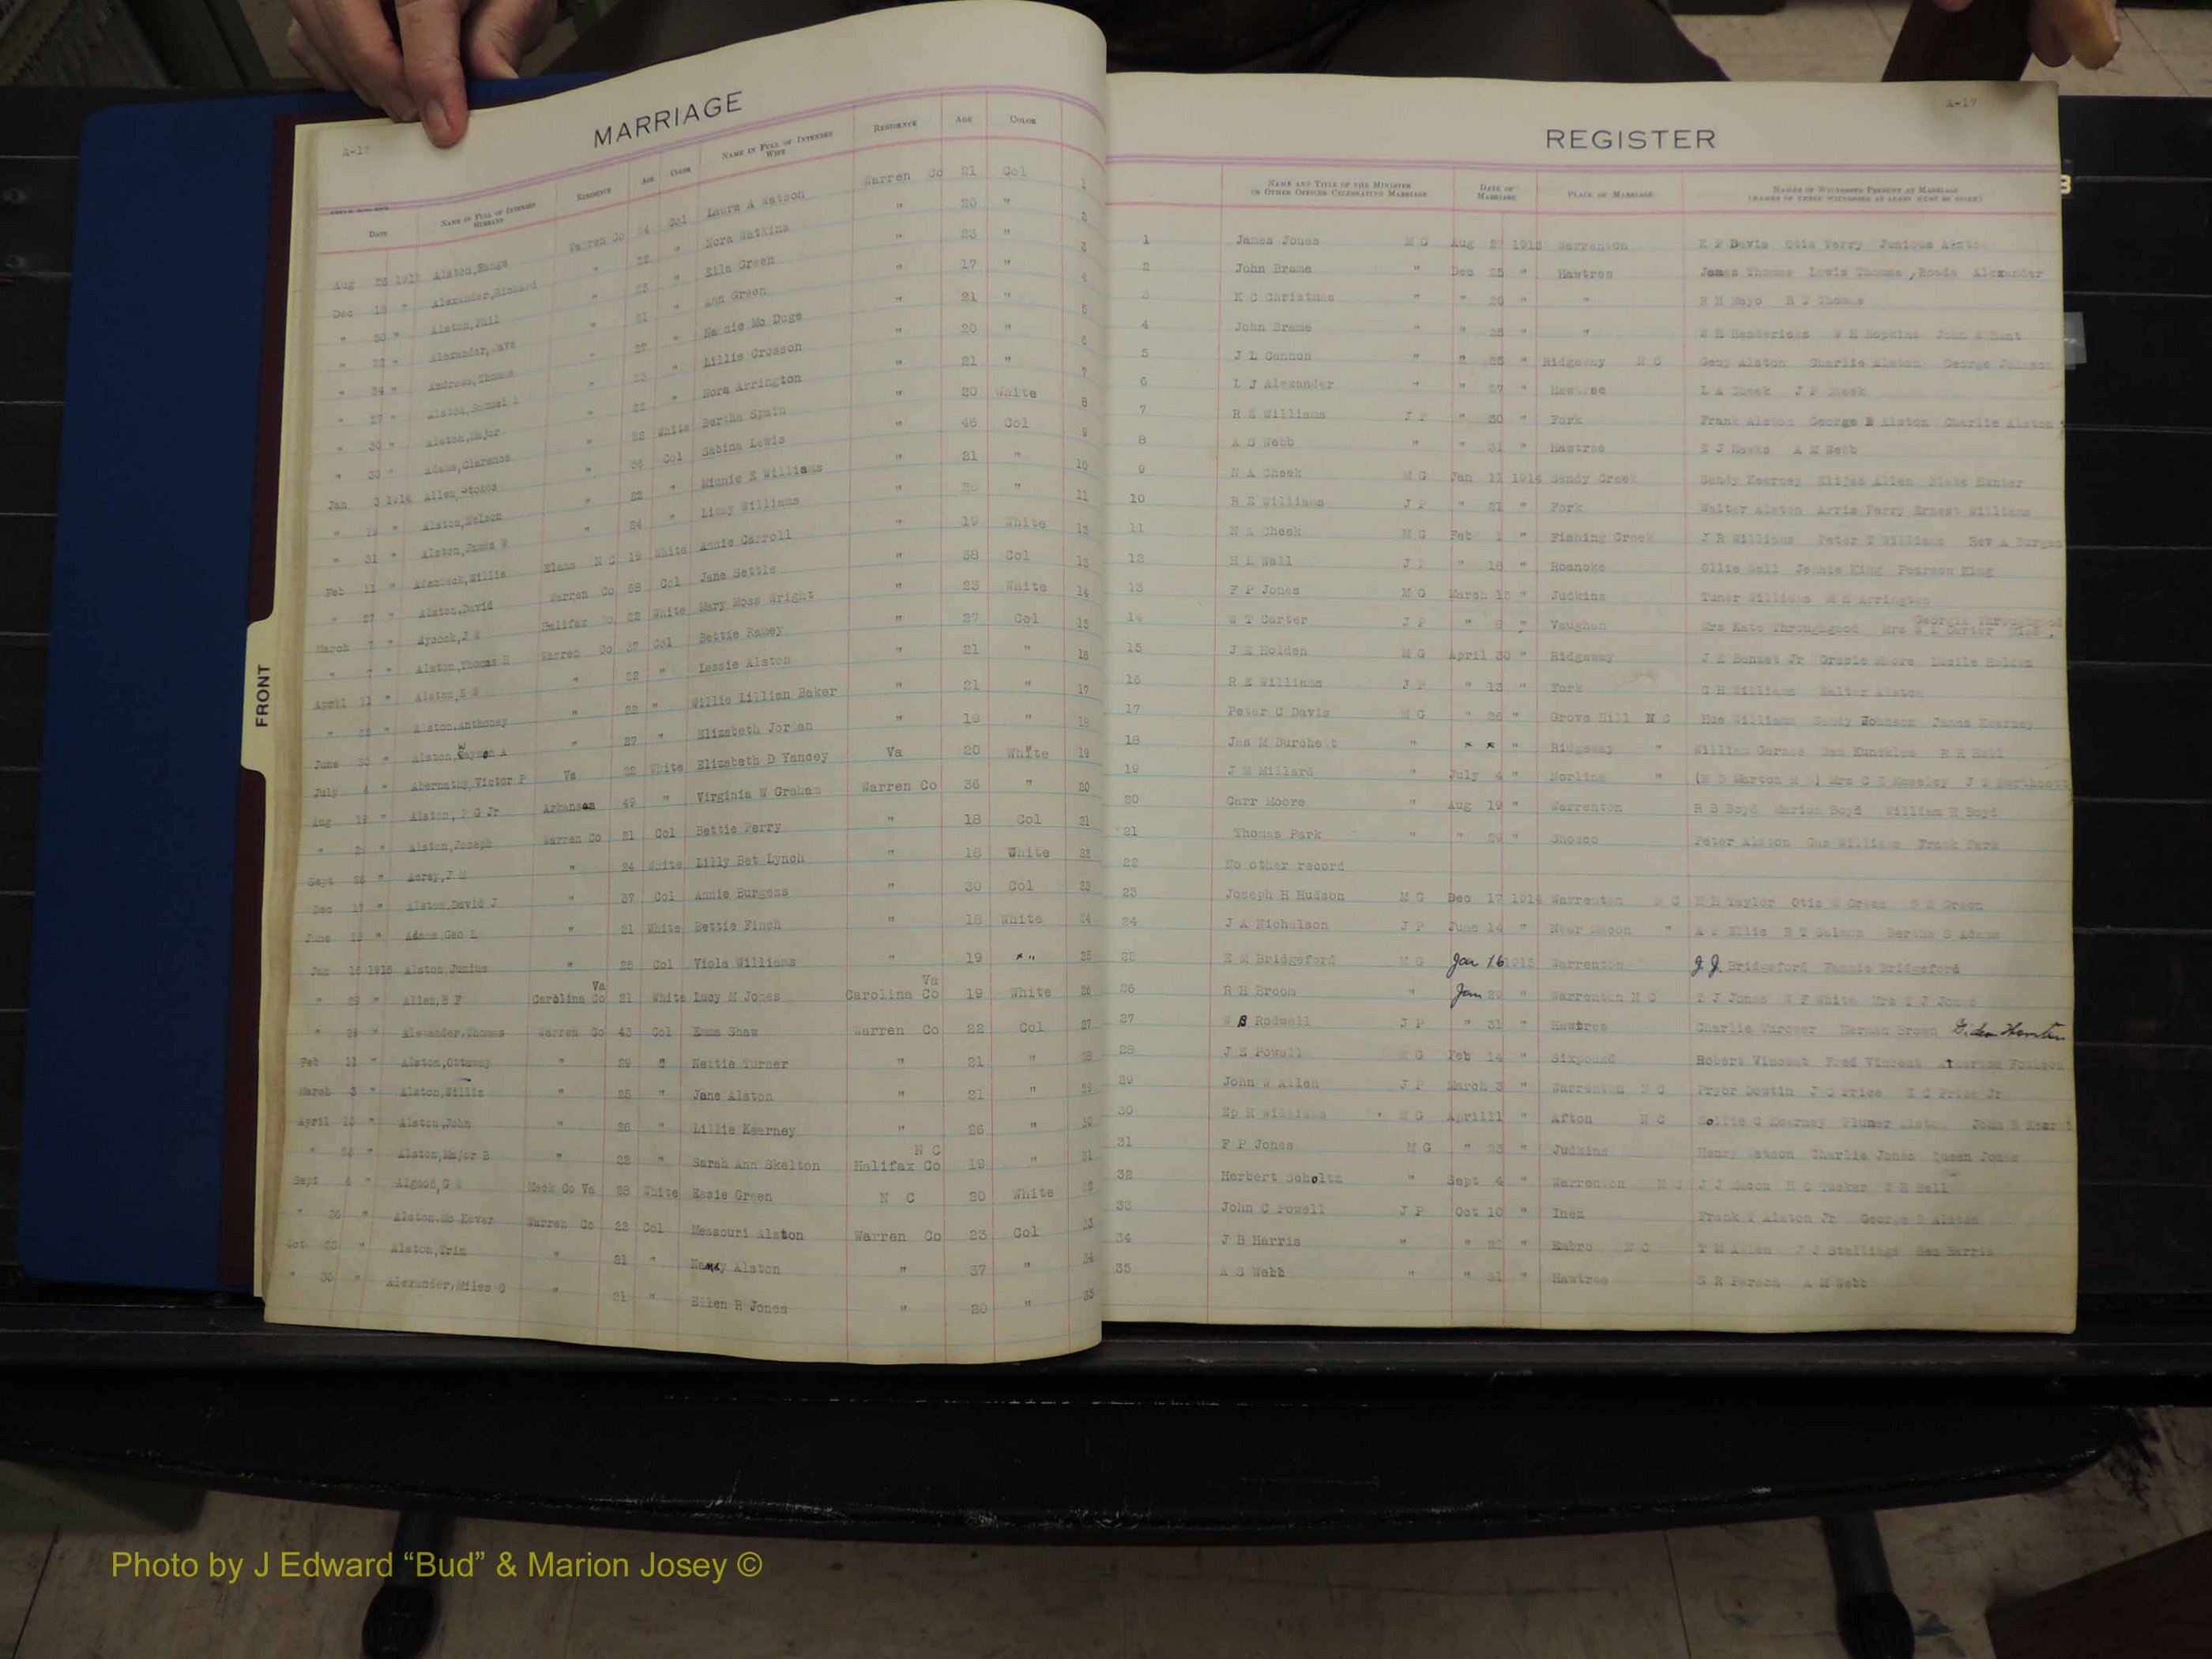 A-17
MARRIAGE
DATE NAME IN FULL OF INTENDED HUSBAND RESIDENCE AGE COLOR NAME IN FULL OF INTENDED WIFE RESIDENCE AGE COLOR
Aug 26 1913 Alston, Warren Co 24 Col Laura A Watson Warren Co 21 Col 1
Dec 18 " Alexander, Richard " 22 " Nora Watkins " 26 " 2
" 20 " Alston, Phil " 25 " Ella Green " 23 " 3
" 22 " Alexander, Dave " 21 " Ann Green " 17 " 4
" 24 " Andrews, Thomas " 27 " Nannie Mc Duge " 21 " 5
" 27 " Alston, Samuel A " 23 " Lillie Crosson " 20 " 6
" 30 " Alston, Major " 22 " Nora Arrington " 21 " 7
" 30 " Adams, Clarence " 22 White Bertha Spain " 20 White 8
Jan 3 1914 Allen, Stokes " 56 Col Sabina Lewis " 46 Col 9
" 19 " Alston, Nelson " 22 " Minnie E Williams " 21 " 10
" 31 " Alston, James W " 24 " Lizzy Williams " 20 " 11
Feb 11 " Willie Elams N C 19 White Annie Carroll " 19 White 12
" 27 " Alston, David Warren Co 68 Col Jane Settle " 38 Col 13
March 7 " Aycock, J W Halifax Co 22 White Mary Moss Wright " 23 White 14
" 7 " Alston, Thomas H Warren Co 37 Col Bettie Ramey " 27 Col 15
April 11 " Alston, E W " 22 " Lessie Alston " 21 " 16
" 22 " Alston, Anthoney " 22 " Willie Lillian Baker " 21 " 17
June 30 " Alston, A " 27 " Elizabeth Jordan " 19 " 18
July 4 " Abernathy, Victor P Va 22 White Elizabeth D Yancey Va 20 White 19
Aug 19 " Alston, P G Jr Arkansas 49 " Virginia W Graham Warren Co 36 " 20
" " Alston, Joseph Warren Co 21 Col Bettie Perry " 18 Col 21
Sept 26 " Acrey, J M " 24 White Lilly Bet Lynch " 18 White 22
Dec 17 " Alston, David J " 37 Col Annie Burgess " 30 Col 23
June 13 " Adams, Geo L " 21 White Bettie Finch " 18 White 24
Jan 16 1915 Alston, Junius " 25 Col Viola Williams " 19 " 25
" 29 " Allen, B F Va Carolina Co 21 White Lucy M Jones Va Carolina Co 19 White 26
" 29 " Alexander, Thomas Warren Co 43 Col Emma Shaw Warren Co 22 Col 27
Feb 11 " Alston, Ottaway " 29 " Nettie Turner " 21 " 28
March 3 " Alston, Willis " 25 " Jane Alston " 21 " 29
April " Alston, John " 26 " Lillie Kearney " 26 " 30
" " Alston, Major B " 22 " Sarah Ann Skelton N C Halifax Co 19 " 31
Sept 4 " Algood, G W Meck Co Va 28 White Essie Green N C 20 White 32
" 26 " Alston, Mc Kever Warren Co 22 Col Messouri Alston Warren Co 23 Col 33
Oct 20 " Alston, Trim " 21 " Alston " 37 " 34
" 30 " Alexander, Miles G " 21 " Ellen R Jones " 20 " 35
FRONT
A-17
REGISTER
NAME AND TITLE OF THE MINISTER OR OTHER OFFICER CELEBRATING MARRIAGE DATE OF MARRIAGE PLACE OF MARRIAGE NAMES OF WITNESSES PRESENT AT MARRIAGE (NAMES OF THREE WITNESSES AT LEAST MUST BE GIVEN)
1 James Jones M G Aug 27 1913 Warrenton E F Davis Otis Terry Junious
2 John Brame " Dec 25 " Hawtree James Thomas Lewis Thomas, Alexander
3 K C Christmas " " 20 " " R H Mayo R T Thomas
4 John Brame " " 25 " " W H Hendericks W H Hopkins John
5 J L Cannon " 25 " Ridgeway N C Alston Charlie Alston George Johnson
6 L J Alexander " " 27 " Hawtree L A Cheek J P Cheek
7 R E Williams J P " 30 " Fork Frank Alston George B Alston Charlie Alston
8 A S Webb " " 31 " Hawtree E J Hawks A M Webb
9 N A Cheek M G Jan 11 1914 Sandy Creek Sandy Kearney Elijah Allen Blake Hunter
10 R E Williams J P " 21 " Fork Walter Alston Perry Ernest Williams
11 N A Cheek M G Feb 1 " Fishing Creek J R Williams Peter T Williams Rev A
12 H L Wall J P " 18 " Roanoke Ollie Jennie King Pearson King
13 F P Jones M G March 15 " Judkins Tuner Williams Arrington
14 W T Carter J P " 8 " Vaughan Mrs Kate Throughgood Mrs Carter Miss Georgia Throughgood
15 J E Holden M G April 30 " Ridgeway Jr Gracie Moore Lucile Holden
16 R E Williams J P " 13 " Fork C H Williams Walter Alston
17 Peter C Davis M G " 26 " Grove Hill N C Williams Sandy Johnson James Kearney
18 Jas M Burchett " * * " Ridgeway " William R H Hall
19 J M Millard " July 4 " Norlina " Mrs C E Moseley
20 Carr Moore " Aug 19 " Warrenton R B Boyd Marion Boyd William H Boyd
21 Thomas Park " " 29 " Shocco Peter Alston Gus Williams Frank Park
22 No other record
23 Joseph H Hudson M G Dec 17 1914 Warrenton N C Taylor Otis Green Green
24 J A Nicholson J P June 14 " Near Macon " A P Ellis Bertha S Adams
25 E M Bridgeford M G Jan 16 1915 Warrenton J.J. Bridgeford Fannie Bridgeford
26 R H Broom " Jan 29 " Warrenton N C T J Jones W F White Mrs T J Jones
27 W B Rodwell J P " 31 " Hawtree Charlie Thrower Herman Brown
28 J E Powell M G Feb 14 " Sixpound Robert Vincent Fred Vincent
29 John W Allen J P March 3 " Warrenton N C Pryor Dowtin J O Price Jr
30 Ep H Williams M G April 11 " Afton N C Kearney Plumer Alston John
31 F P Jones M G " 25 " Judkins Henry Watson Charlie Jones Queen Jones
32 Herbert Scholtz " Sept 4 " Warrenton J J Macon H G Tucker
33 John C Powell J P Oct 10 " Inez Frank T Alston Jr George Alston
34 J B Harris " " 22 " Embro N C T M Allen J J Stallings Harris
35 A S Webb " " 31 " Hawtree S R Person A M Webb
Photo by J Edward “Bud” & Marion Josey ©